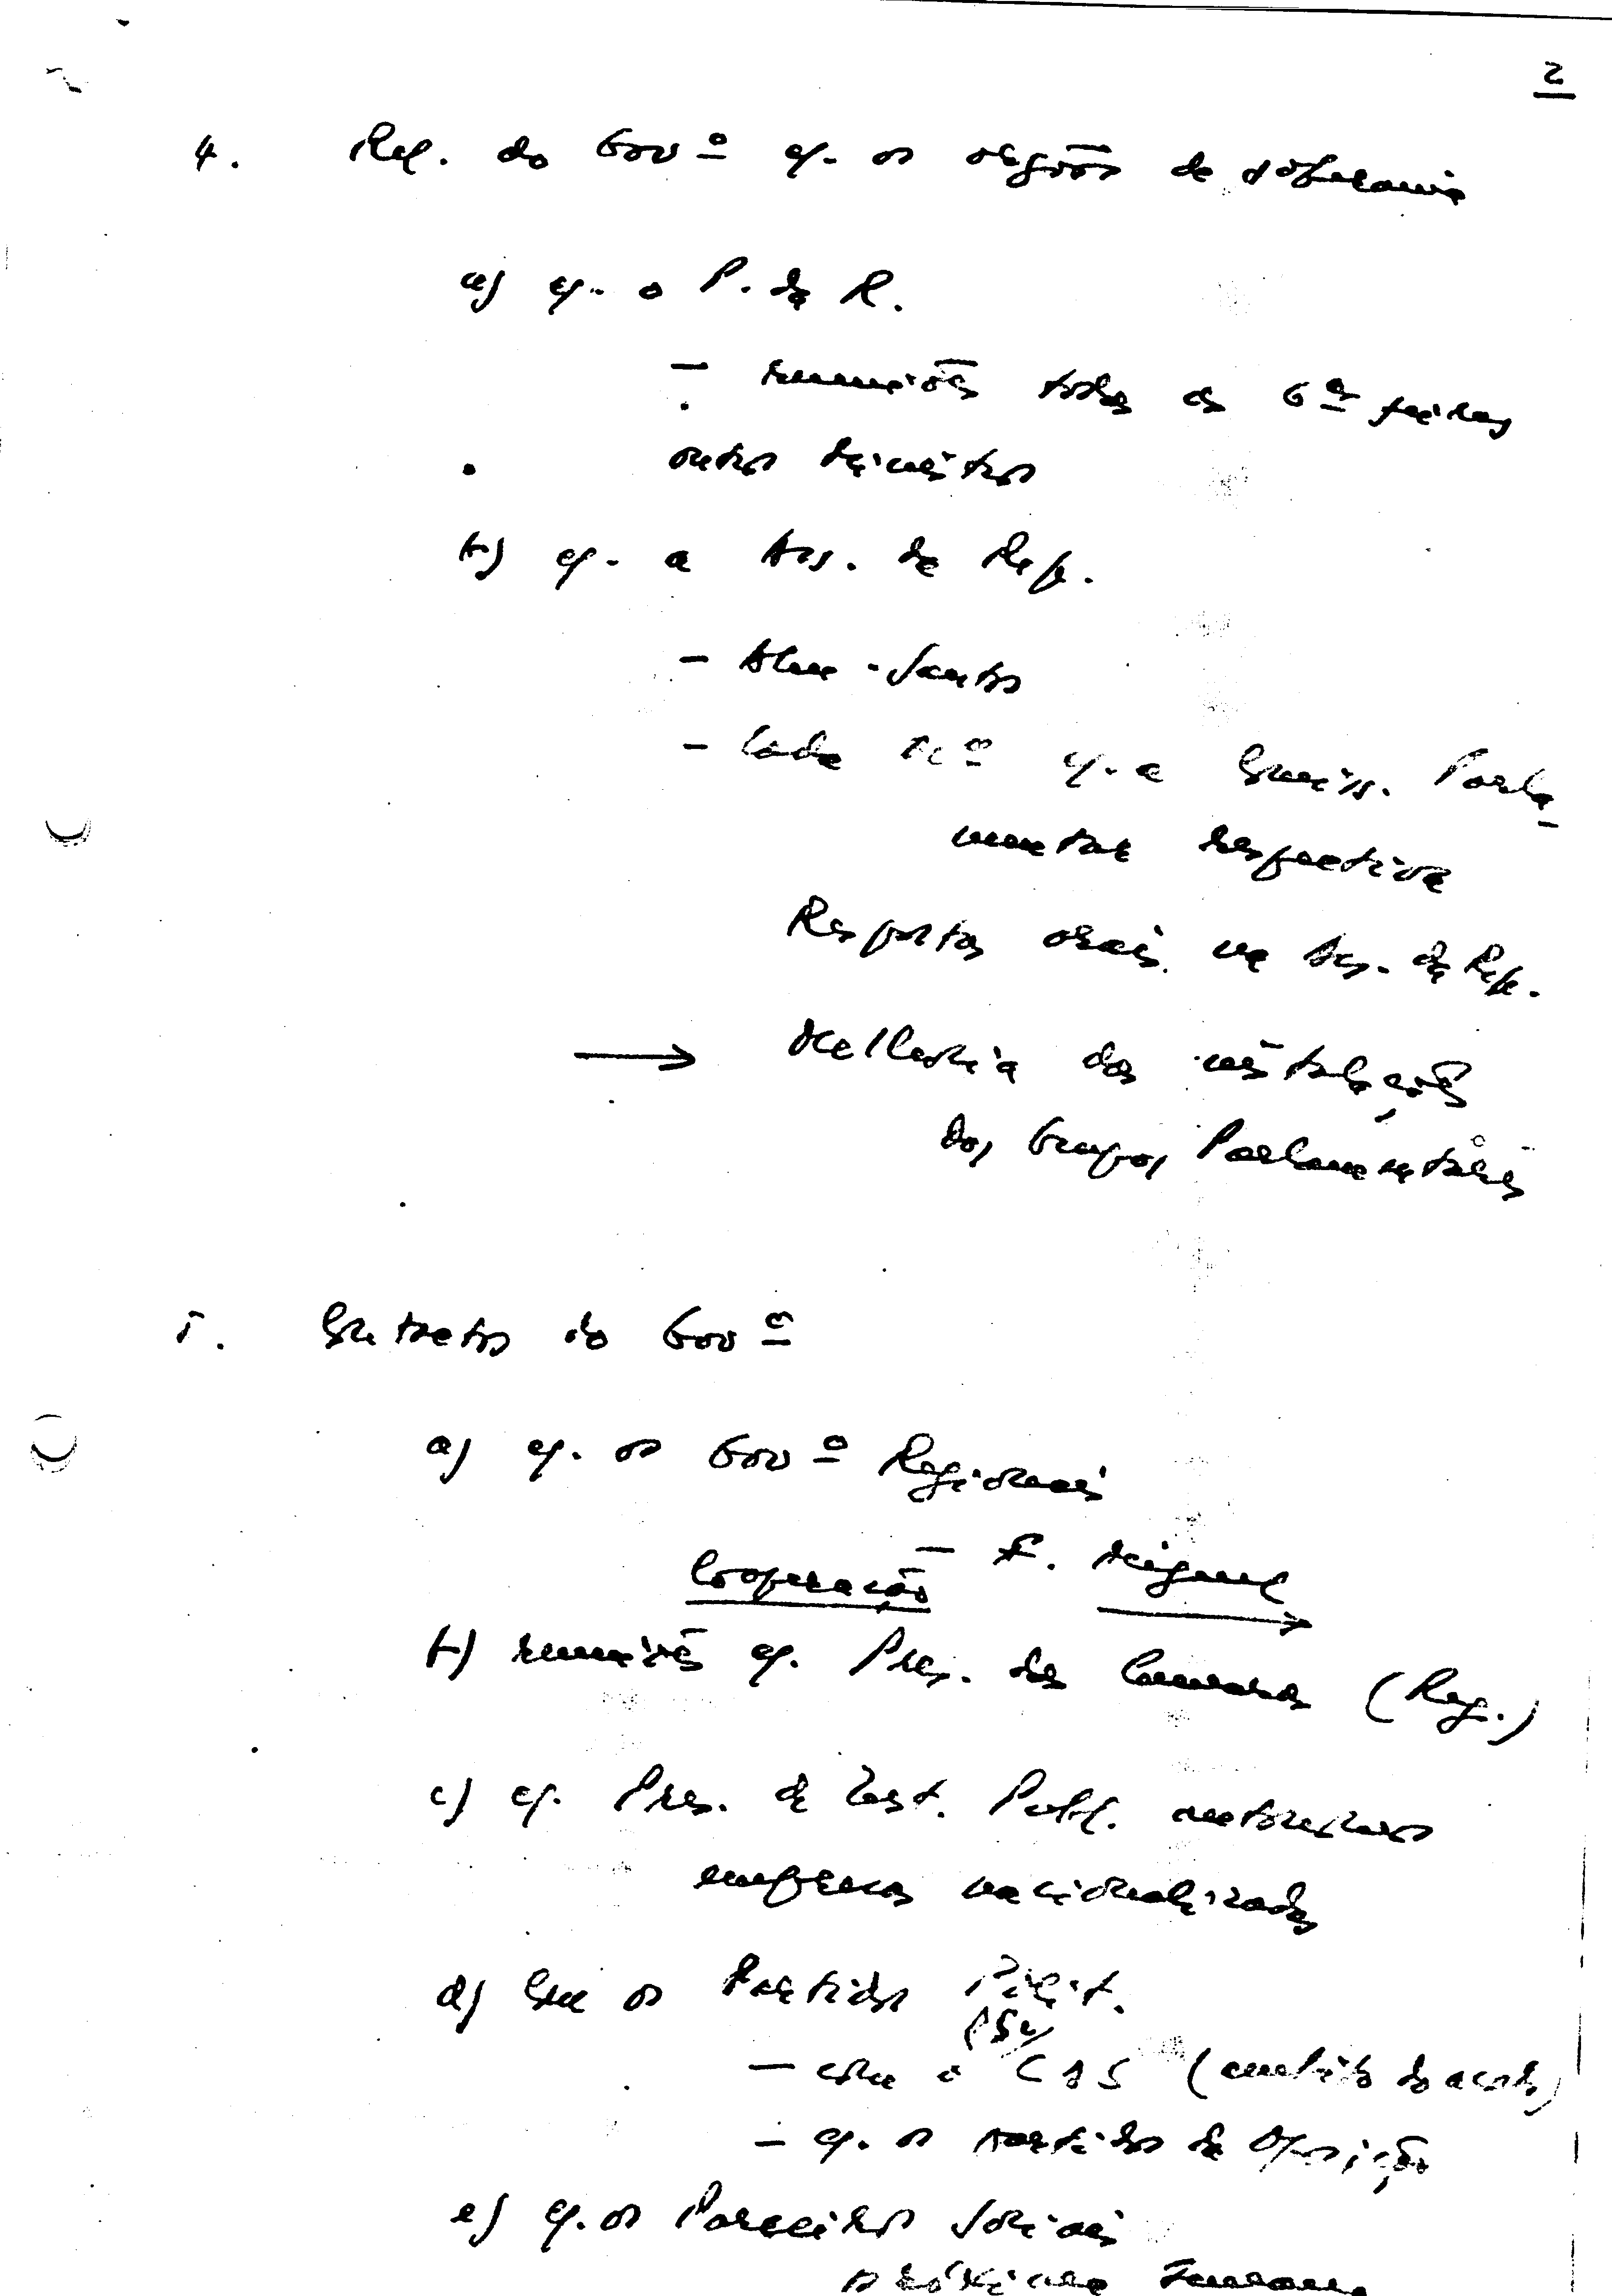 2
4. Rel. do Gov.º c/. os orgãos de soberania
a) c/. o P. da R.
– reuniões todas as 6ªs feiras
outros ministros
b) c/. a Ass. da Rep.
– Alm. Santos
– Cada Mº c/. a Comiss. Parla-
mentar respectiva
Respostas orais na Ass. da Rep.
→ Melhoria das instalações
dos Grupos Parlamentares
5. Contactos do Gov.º
a) c/. os Gov.º Regionais
– F. Miguel
Cooperação
b) reuniões c/. Pres. das Camaras (Reg.)
c) c/. Pres. de Inst. Públ. autónomos
empresas nacionalizadas
d) Com os Partidos Polít.
– com o CDS (âmbito do acordo)
– c/. os partidos da Oposição
e) c/. os Parceiros Sociais
próxima semana